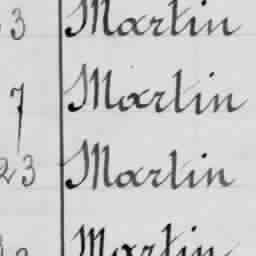 3 Martin
7 Martin
23 Martin
Martin